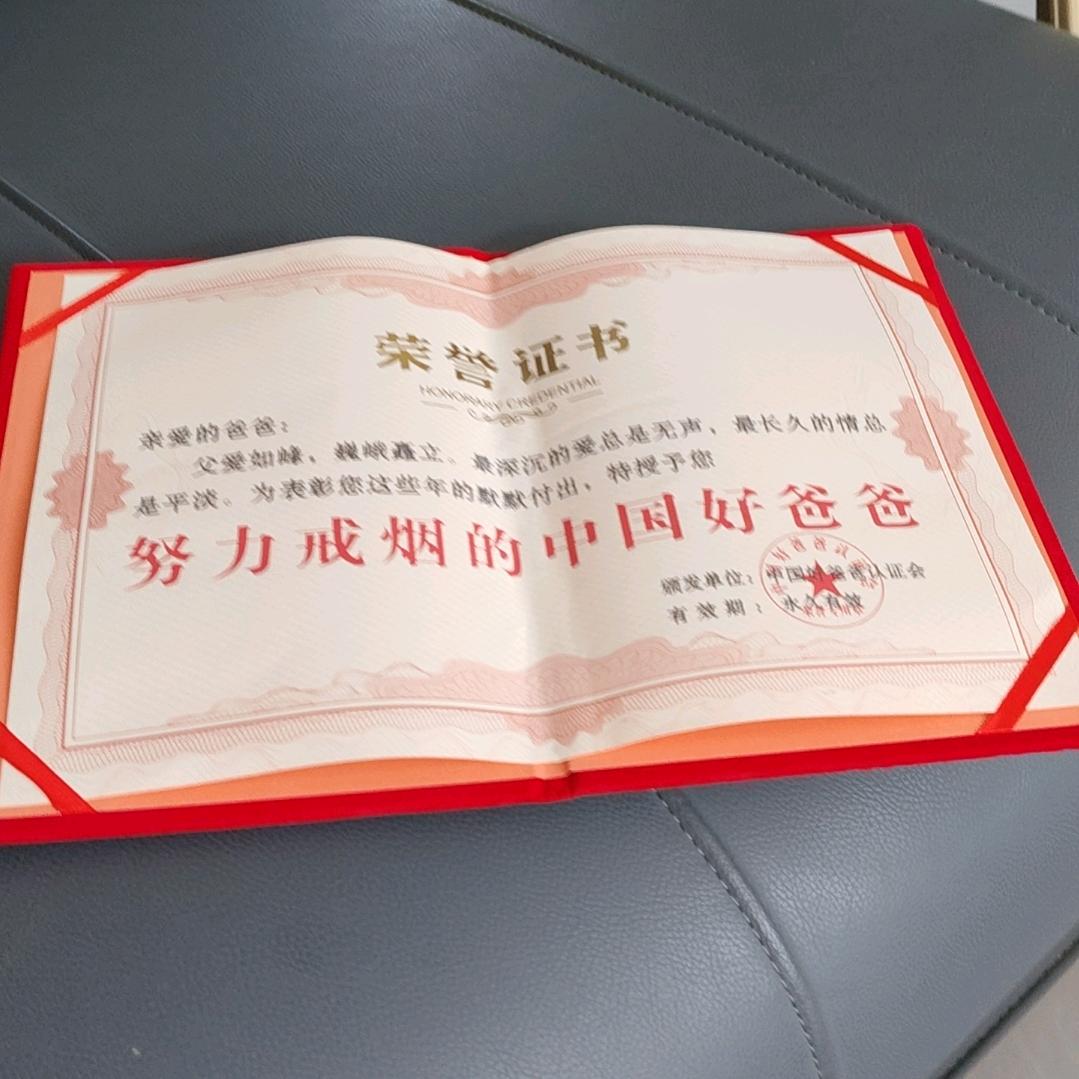 荣誉证书
HONORARY CREDENTIAL
亲爱的爸爸：
父爱如峰，巍峨矗立。最深沉的爱总是无声，最长久的情总
是平淡。为表彰您这些年的默默付出，特授予您
努力戒烟的中国好爸爸
颁发单位：中国好爸爸认证会
有效期：永久有效